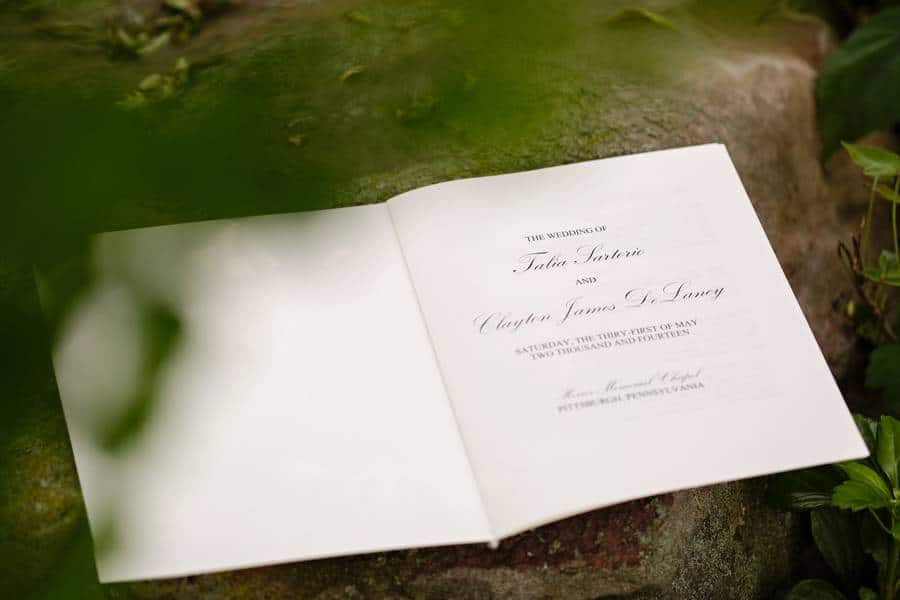 THE WEDDING OF
Talia Sartorio
AND
Clayton James De Lancy
SATURDAY, THE THIRY-FIRST OF MAY
TWO THOUSAND AND FOURTEEN
Heinz Memorial Chapel
PITTSBURGH, PENNSYLVANIA